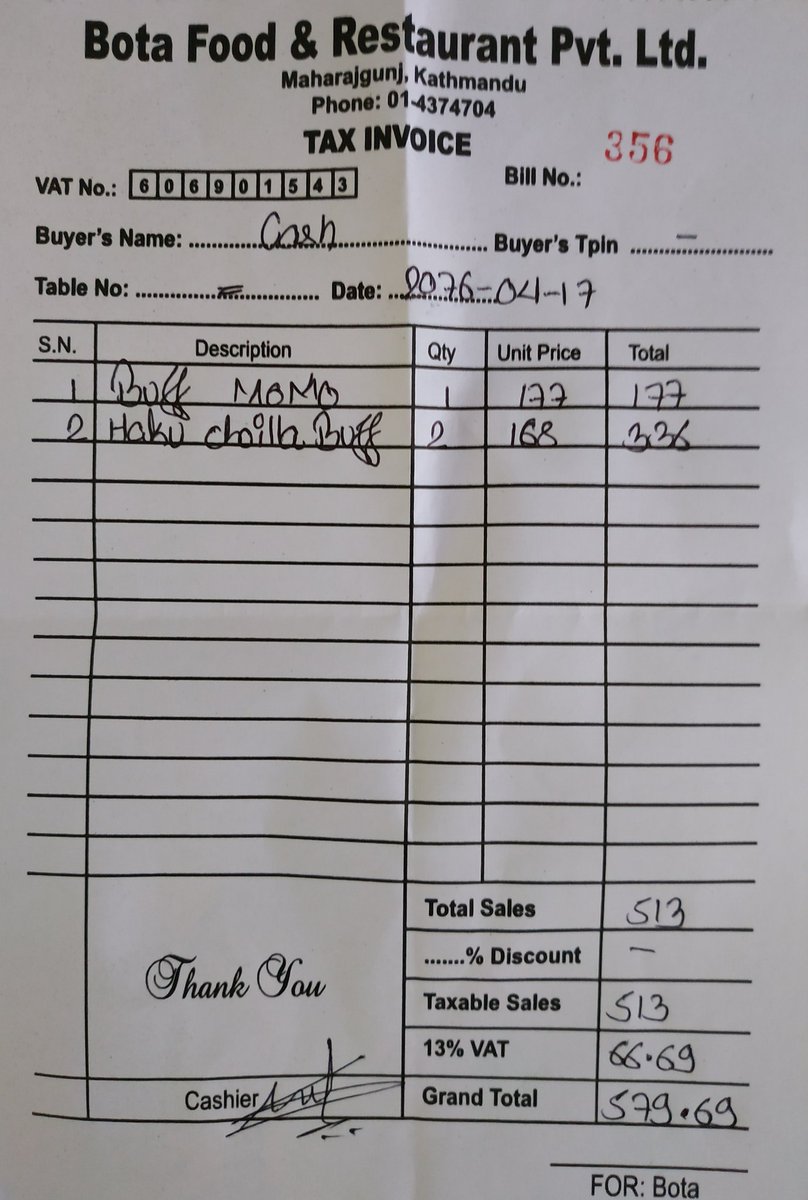 Bota Food & Restaurant Pvt. Ltd.
Maharajgunj, Kathmandu
Phone: 01-4374704
TAX INVOICE
VAT No.: 606901543 Bill No.: 356
Buyer's Name: Cash Buyer's Tpin —
Table No: Date: 2076-04-17
S.N. Description Qty Unit Price Total
1 Buff MOMO 1 177 177
2 Haku choilla Buff 2 168 336
Total Sales 513
.......% Discount —
Taxable Sales 513
Thank You
13% VAT 66.69
Cashier Grand Total 579.69
FOR: Bota